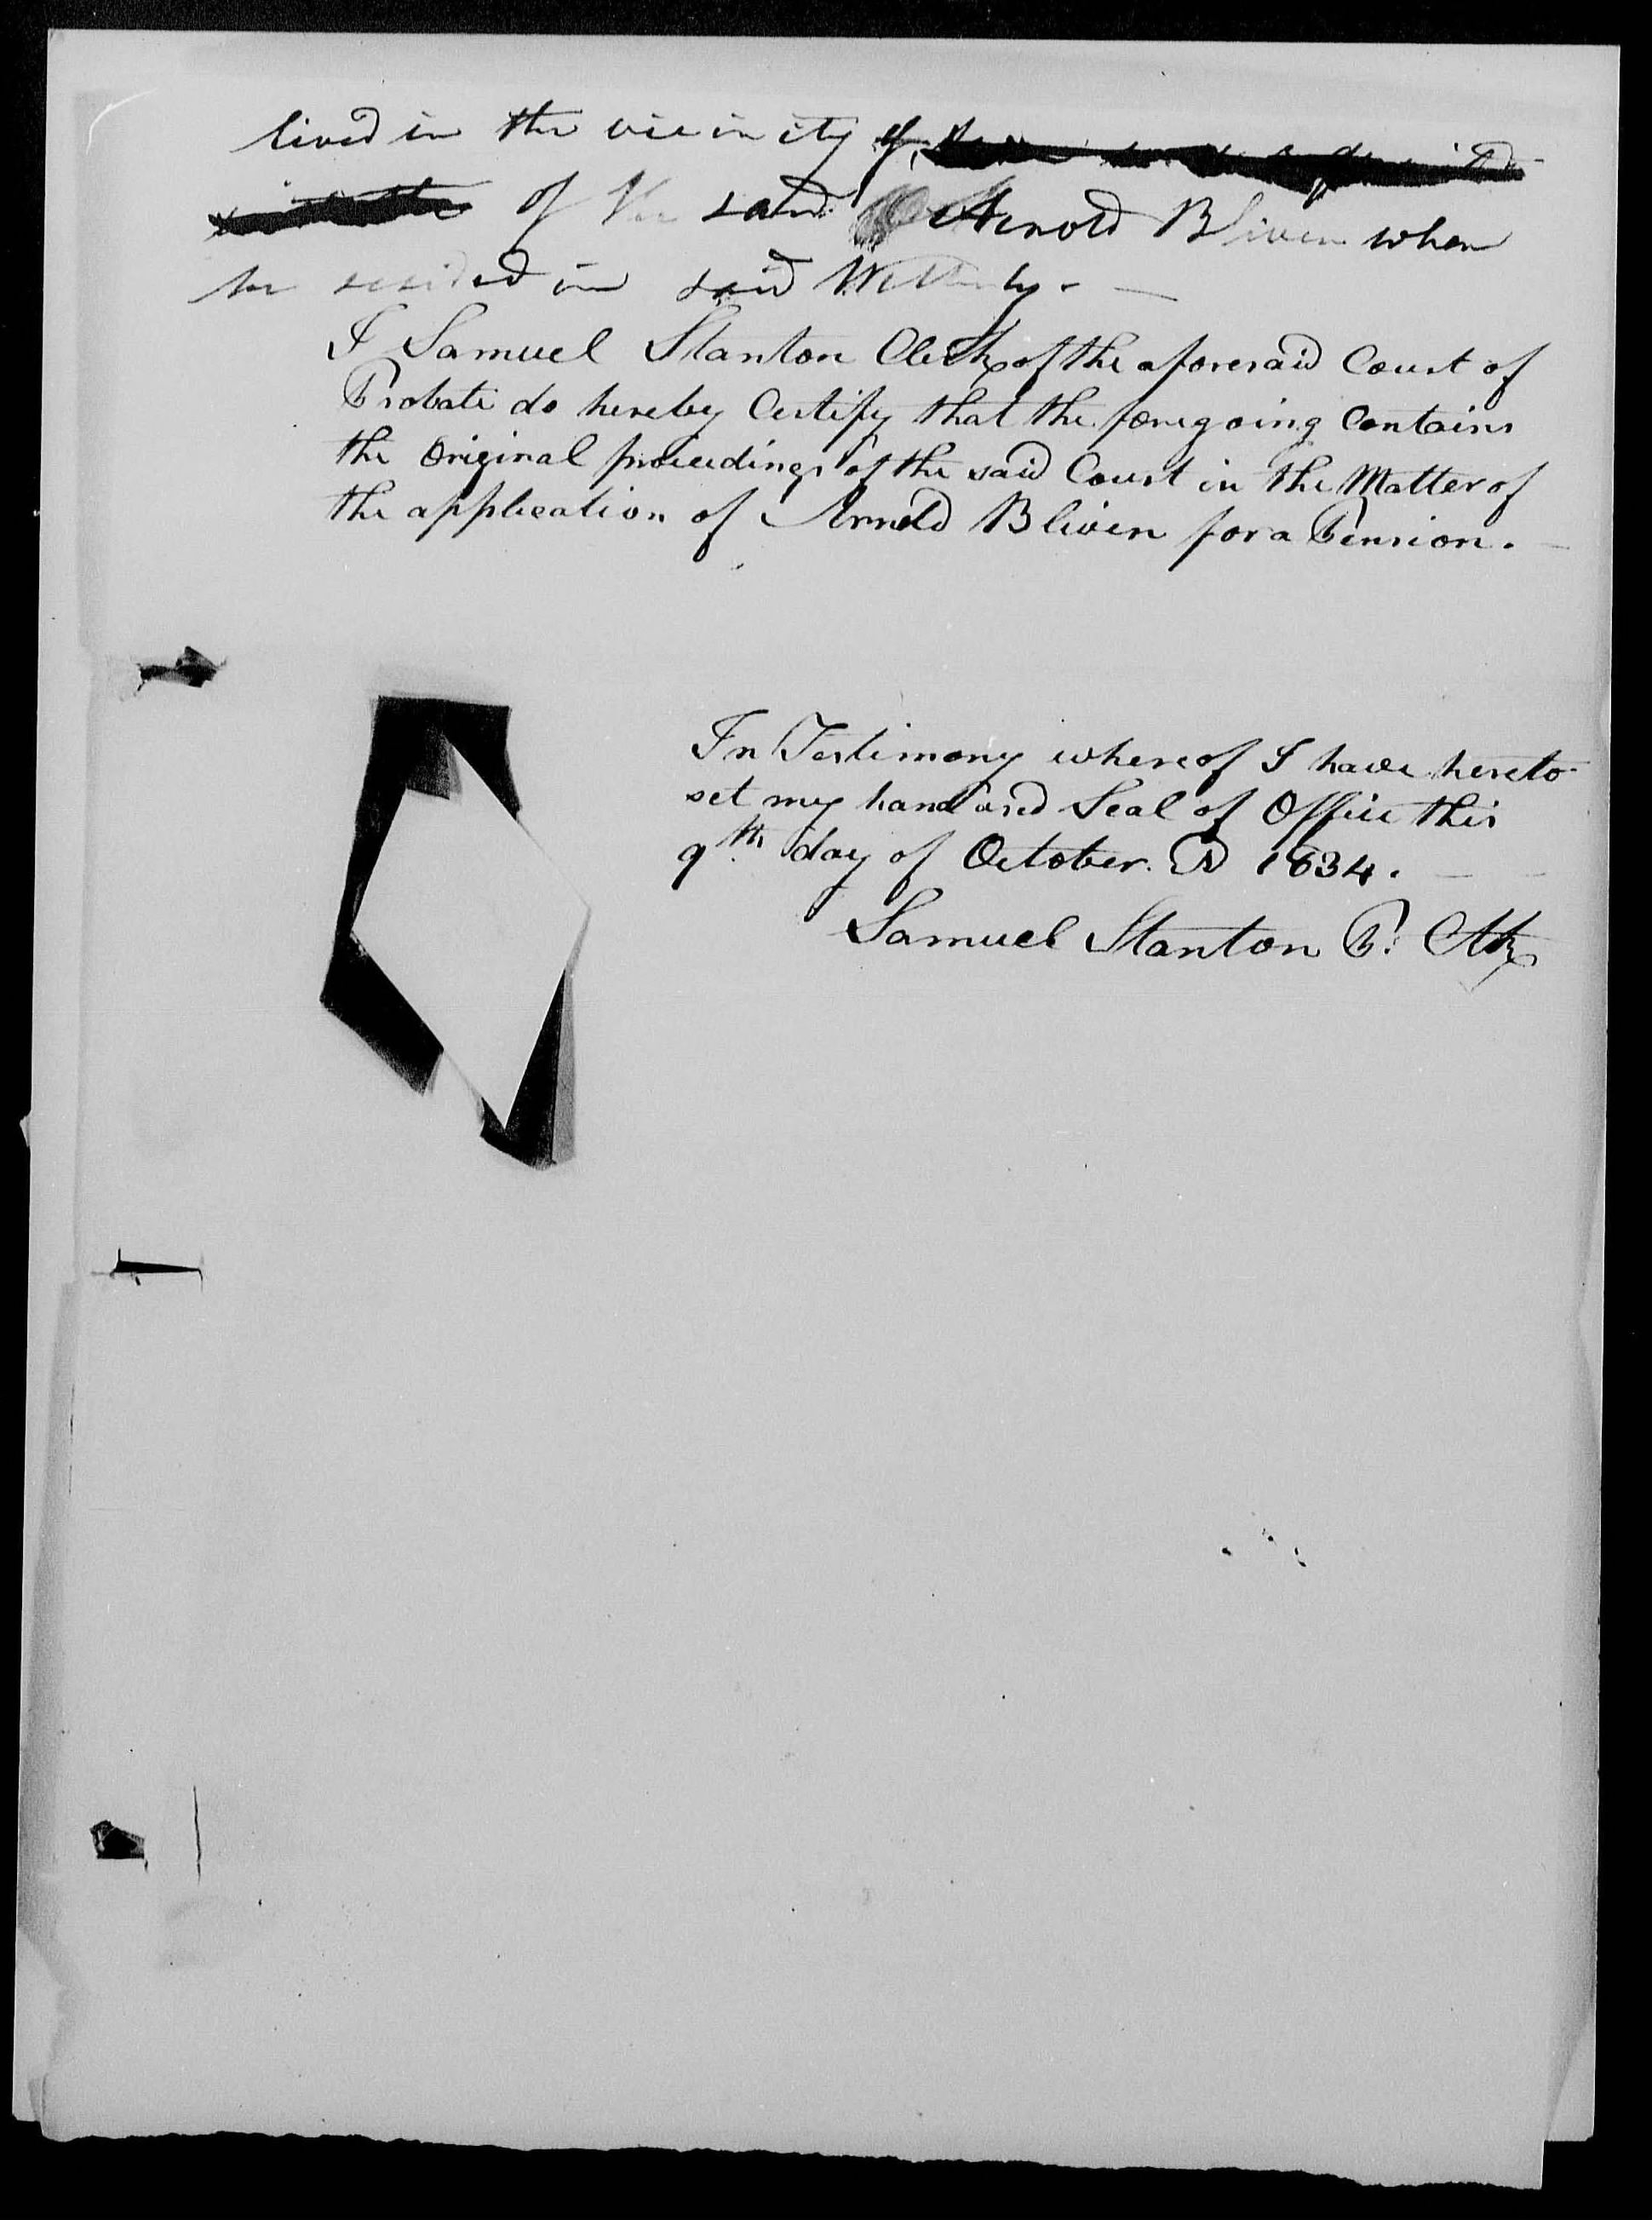 lived in the vicinity of
of the said Arnold Bliven when
he resided in said Westerly. —
I Samuel Stanton Clerk of the aforesaid Court of
Probate do hereby Certify that the foregoing Contains
the Original proceedings of the said Court in the Matter of
the application of Arnold Bliven for a Pension. —
In Testimony whereof I have hereto
set my hand and Seal of Office this
9th day of October. AD 1834. —
Samuel Stanton P. Clk